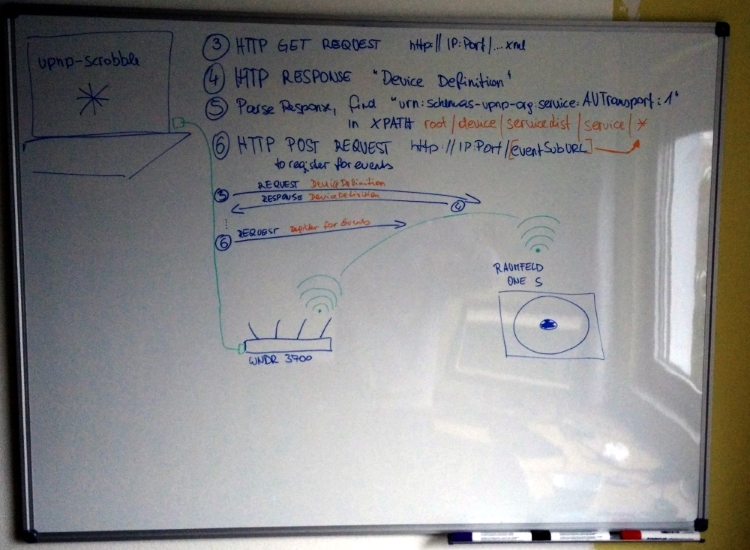 upnp-scrobble
③ HTTP GET REQUEST http://IP:Port/...xml
④ HTTP RESPONSE "Device Definition"
⑤ Parse Response, find "urn:schemas-upnp-org:service:AVTransport:1"
in XPATH root/device/serviceList/service/*
⑥ HTTP POST REQUEST http://IP:Port/[eventSubURL]
to register for events
③ REQUEST Device Definition
RESPONSE Device Definition
④
⑥ REQUEST register for events
RAUMFELD
ONE S
WNDR 3700